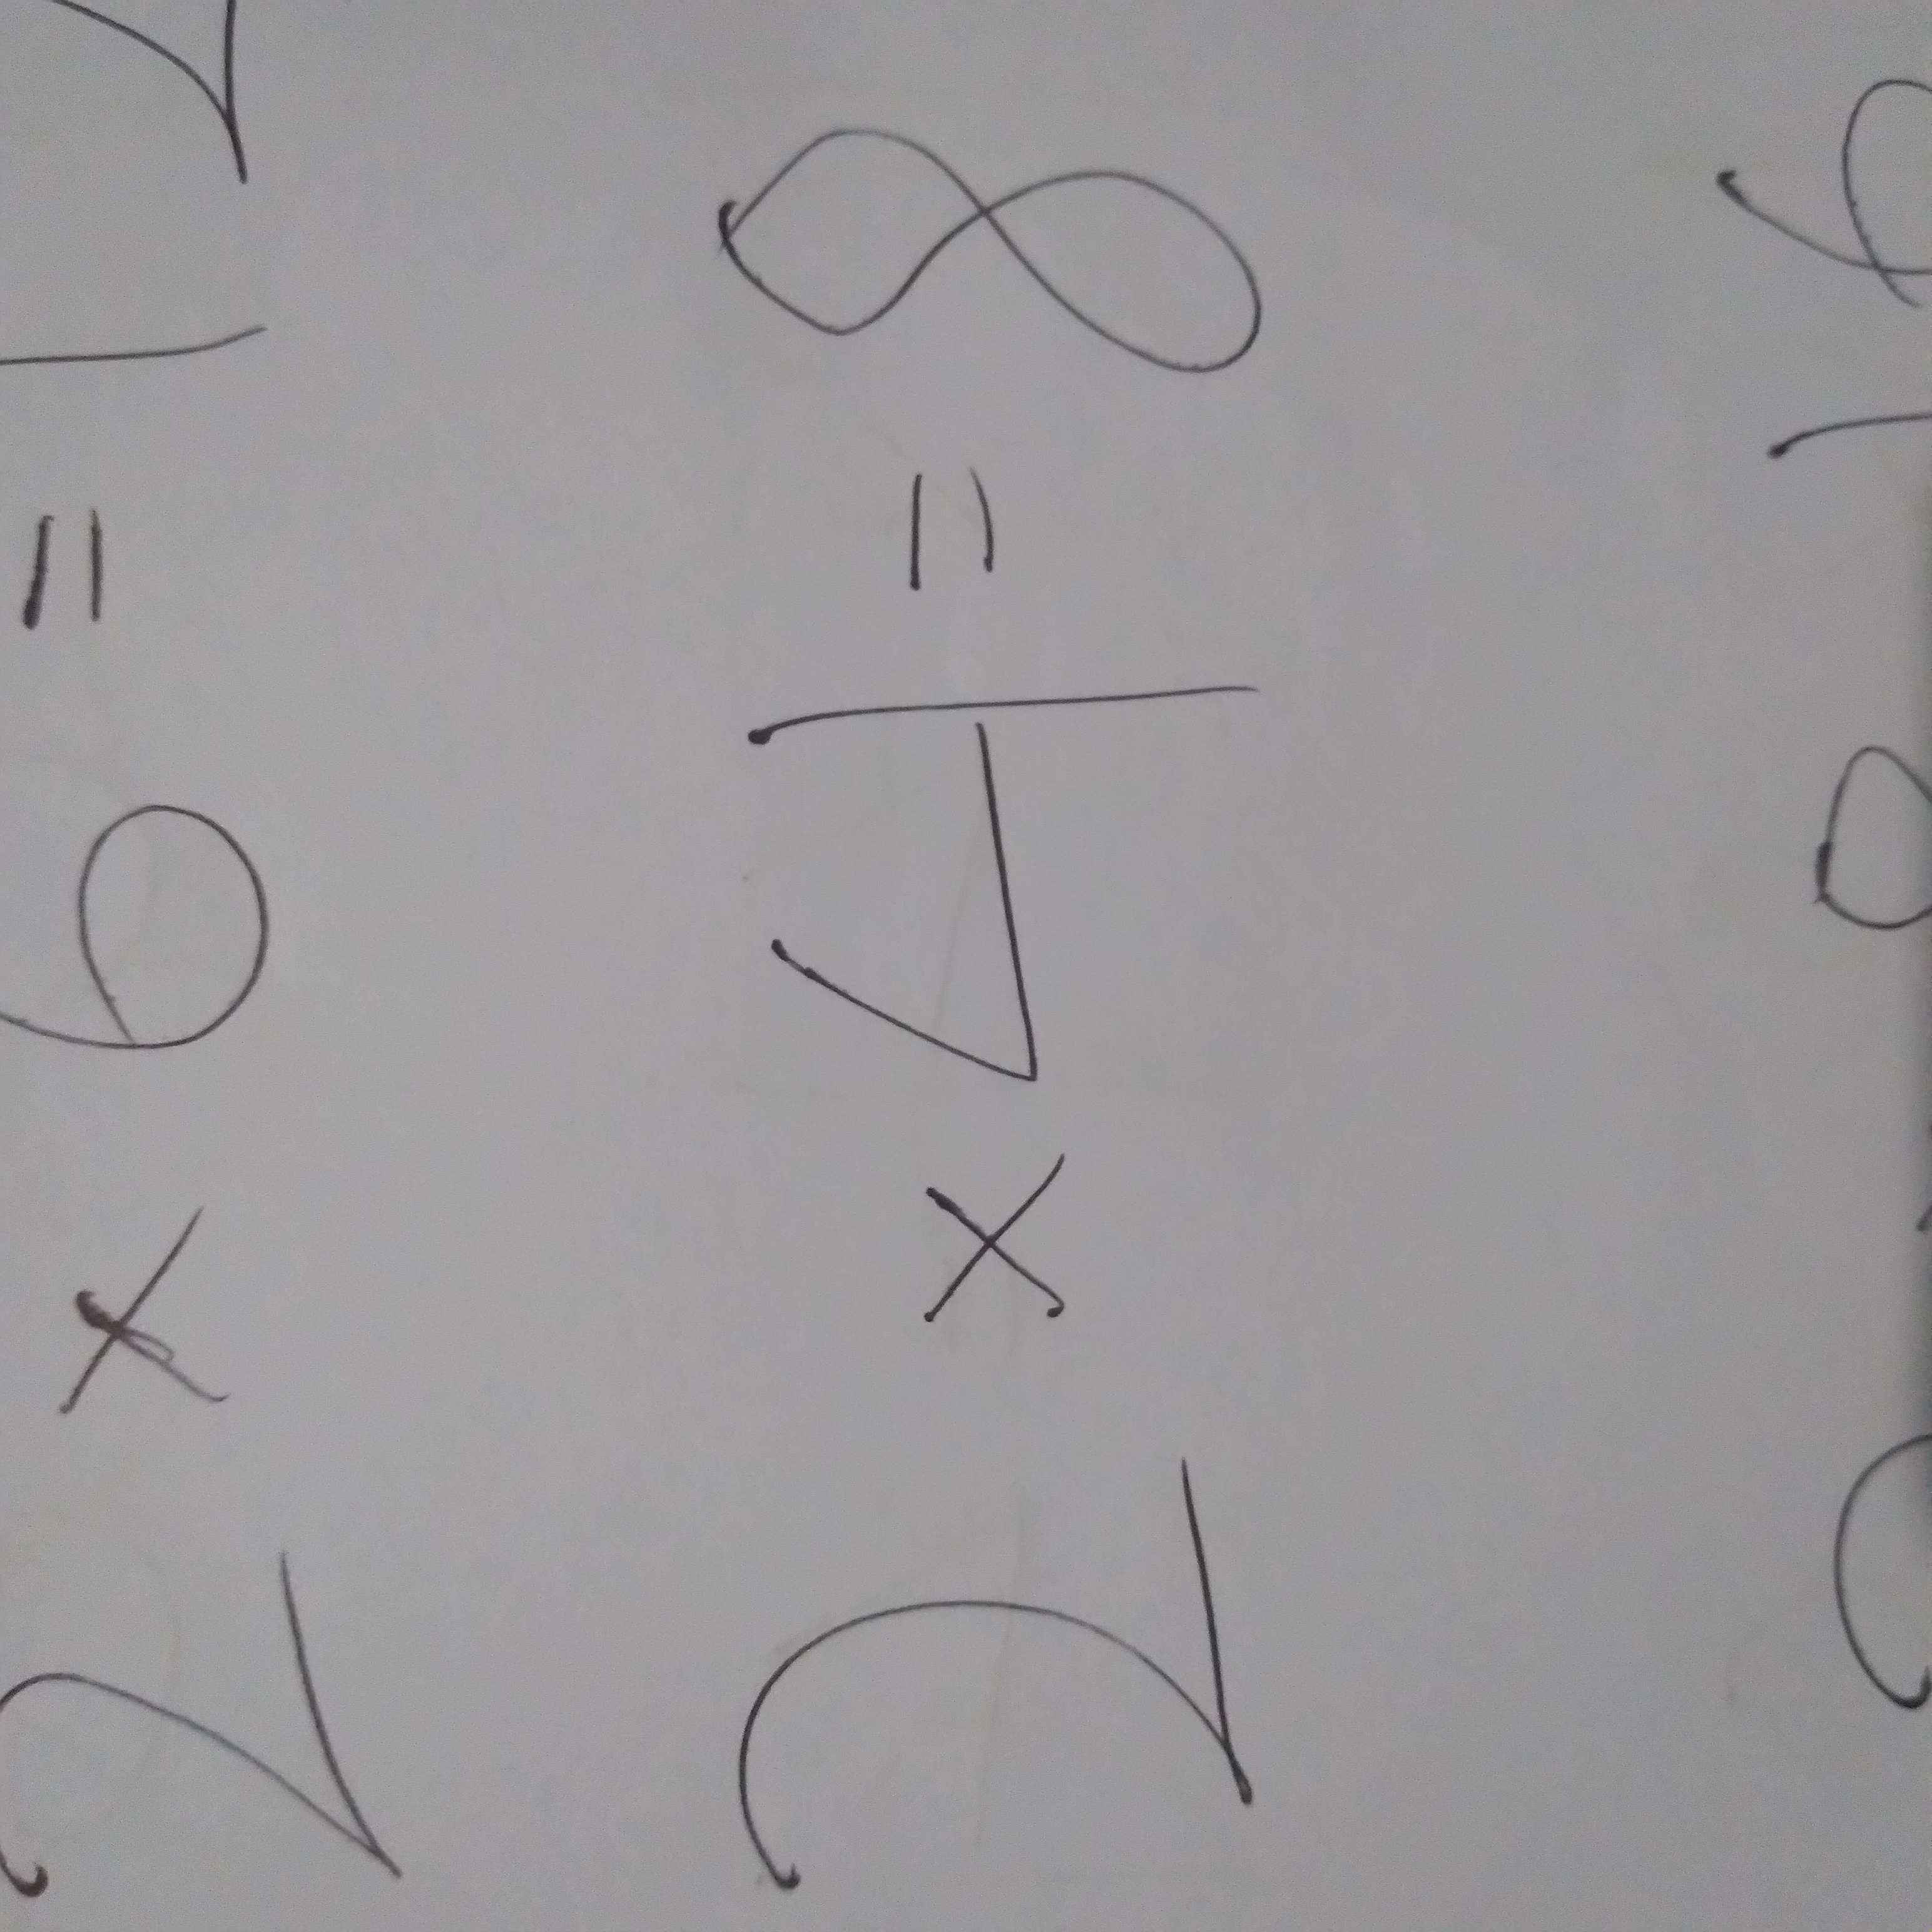 2 × 6 = 12
2 × 4 = 8
2 × 8 16